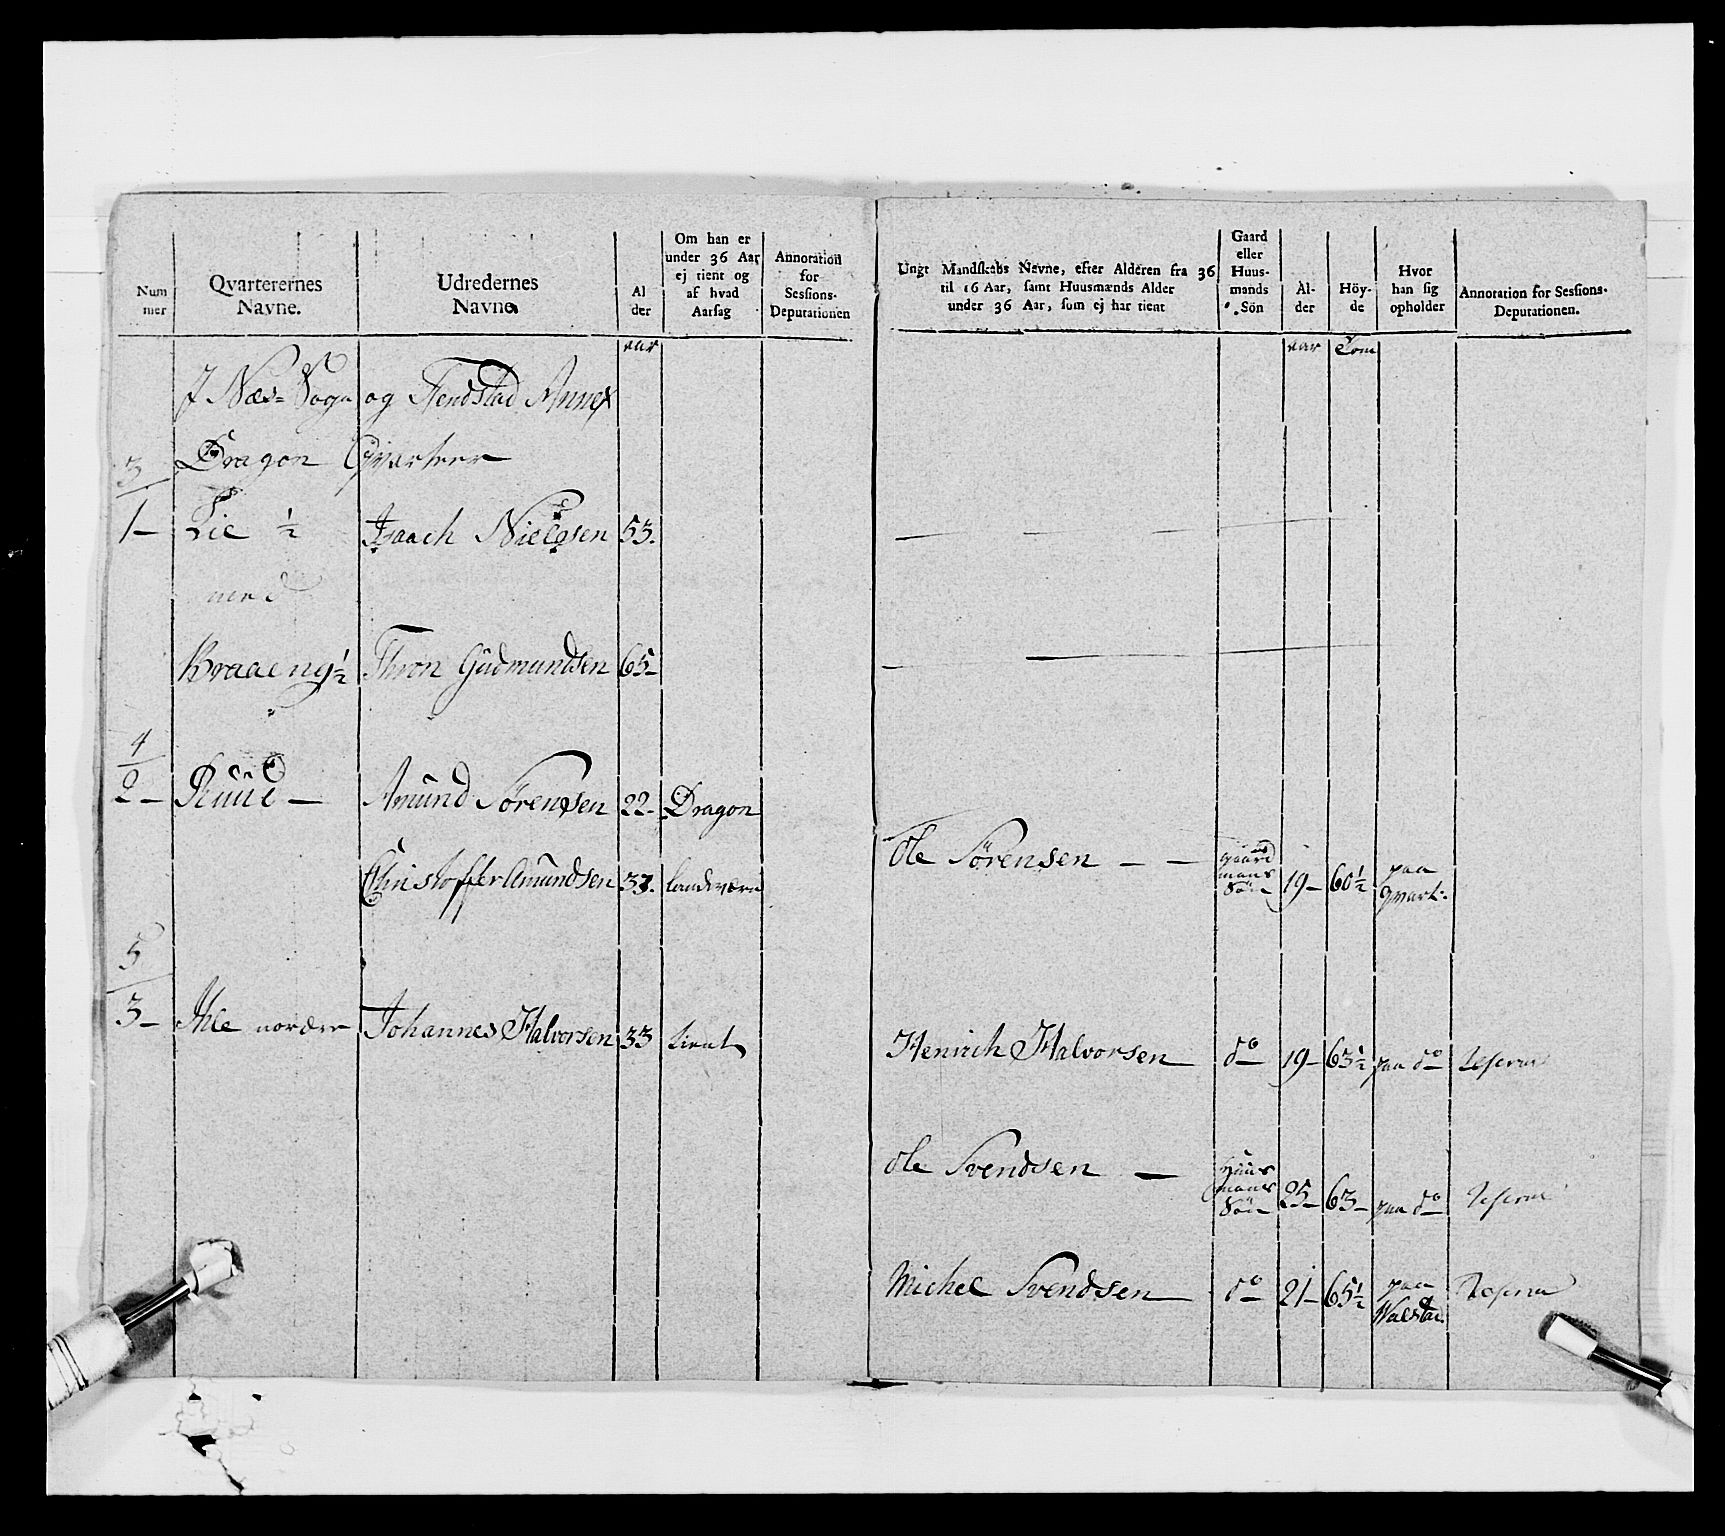 Num
mer
Qvarterernes
Navne.
Udredernes
Navne.
Al
der
Om han er
under 36 Aar
ej tient og
af hvad
Aarsag
Annotation
for
Sessions-
Deputationen
Ungt Mandskabs Navne, efter Alderen fra 36
til 16 Aar, samt Huusmænds Alder
under 36 Aar, som ej har tient
Gaard
eller
Huus-
mands
Sön
Al-
der
Höy-
de
Hvor
han sig
opholder
Annotation for Sessions-
Deputationen.
aar
aar Tom
J Næs Sogn og Annex
3 Dragon Qvarteer
1- Lie ½ Isaach Nielssen 53.
med
Braaeng ½ Thron Gudmundsen 65-
4
2- Ruud - Amund Sörensen 22- Dragon
Ole Sörensen - - gaard mans Sön 19- 60½ paa qvart:
Christoffer Amundsen 37. Landværn
5
3- Ihle nordre Johannes Halvorsen 33
Henrich Halvorsen do 19- 63½ paa do
Ole Svendsen - Huus mans Sön 25- 63- paa do
Michel Svendsen do 21- 65½ paa